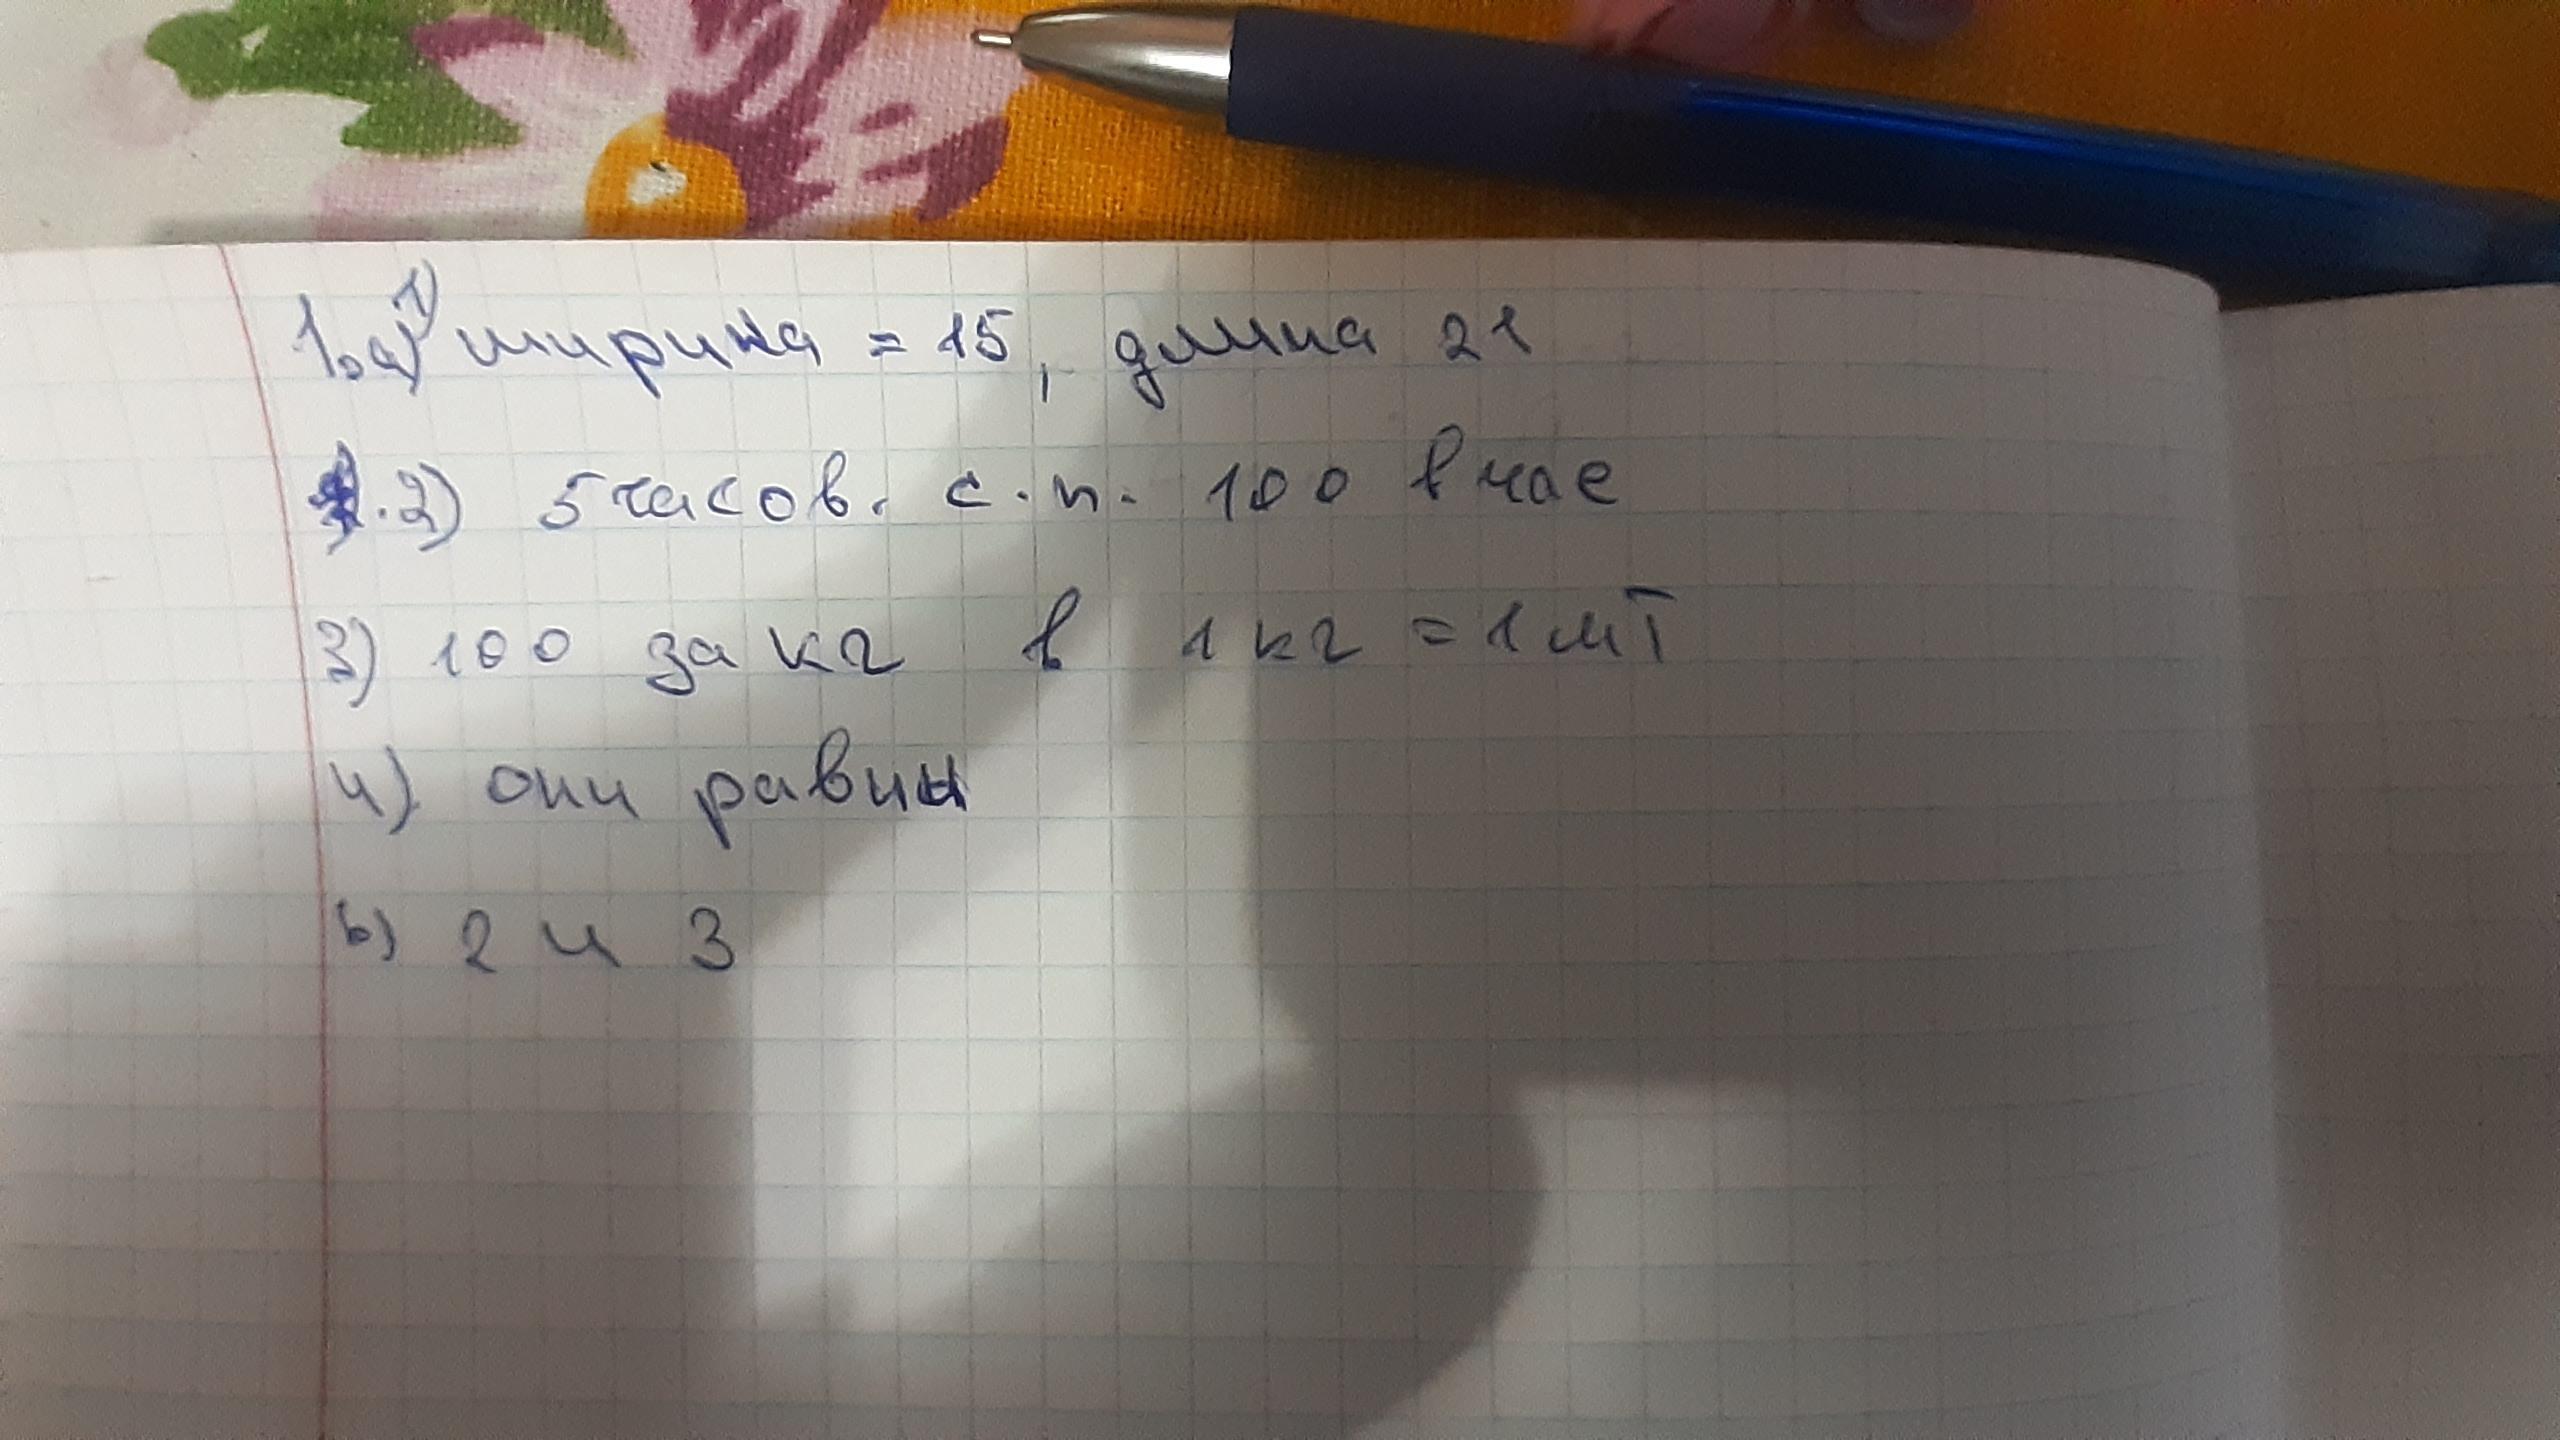 1.а) 1) ширина = 15, длина 21
2) 5 часов. с.п. 100 в час
3) 100 за кг в 1 кг = 1 шт
4) они равны
b) 2 и 3